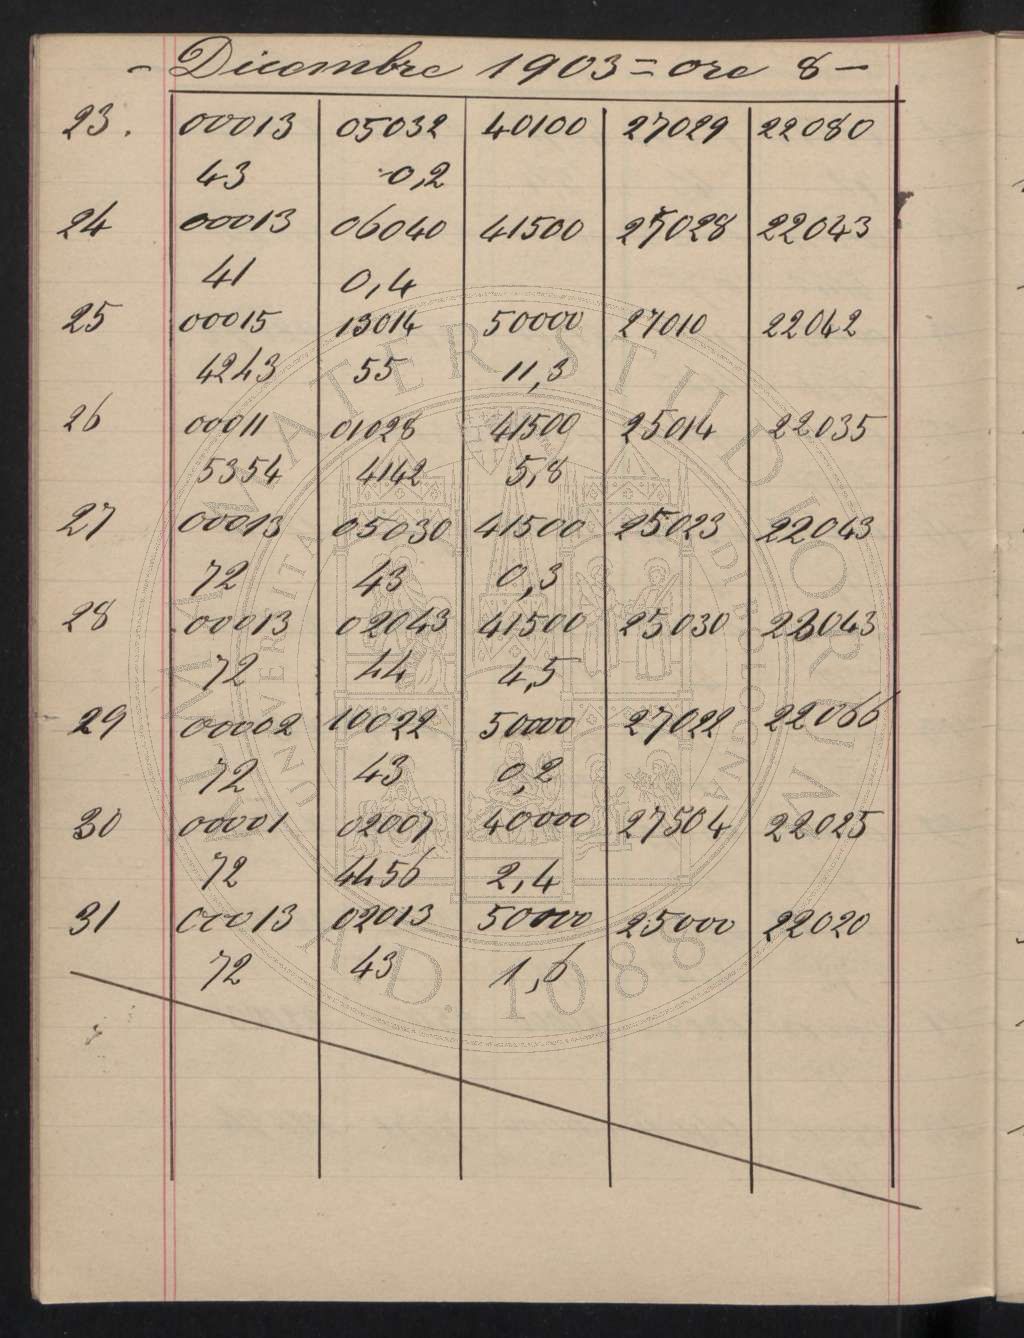 - Dicembre 1903 = ore 8 -
23. 00013 05032 40100 27029 22080
43 0,2
24 00013 06040 41500 27028 22043
41 0,4
25 00015 13014 50000 27010 22042
4243 55 11,3
26 00011 01028 41500 25014 22035
5354 4142 5,8
27 00013 05030 41500 25023 22043
72 43 0,3
28 00013 02043 41500 25030 22043
72 44 4,5
29 00002 10022 50000 27022 22066
72 43 0,2
30 00001 02007 40000 27504 22025
72 4456 2,4
31 00013 02013 50000 25000 22020
72 43 1,6
ALMA MATER STUDIORUM
A.D. 1088